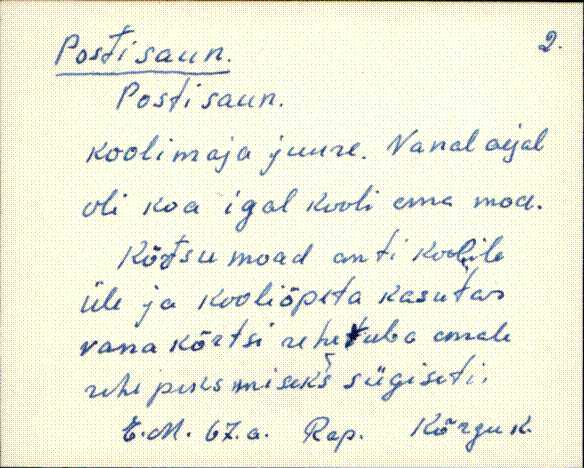 2.
Posti saun.
Posti saun.
koolimaja juure. Vanal aijal
oli koa igal kooli oma moa.
Kõrtsu moad anti koolile
üle ja kooliõpeta kasutas
vana kõrtsi rehetuba omale
rehe peksmiseks sügiseti.
E.M. 67.a. Rap. Kõrgu k.